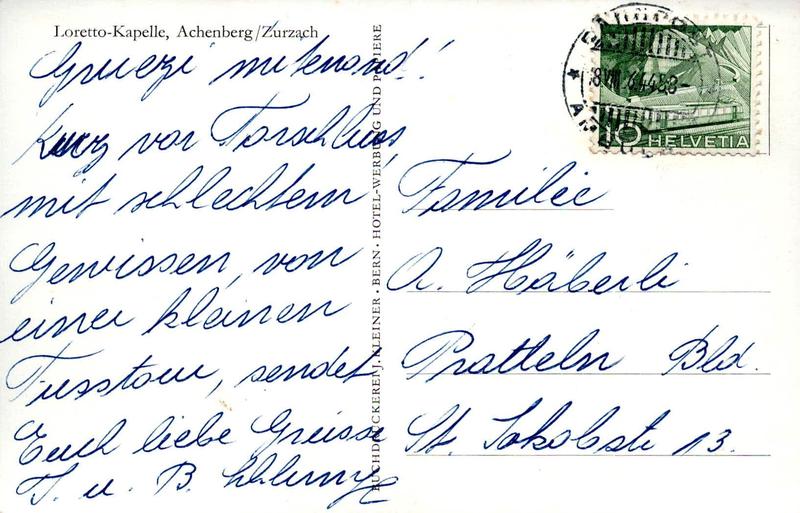 Loretto-Kapelle, Achenberg/Zurzach
Gruezi mitenand!
Kurz vor Torschluss,
mit schlechtem
Gewissen, von
einer kleinen
Fusstour, sendet
Euch liebe Grüsse
T. u. B.
BUCHDRUCKEREI J. KLEINER · BERN · HOTEL-WERBUNG UND PAPIERE
10 HELVETIA
Familie
A. Häberli
Pratteln Bld.
St. Jakobstr 13.